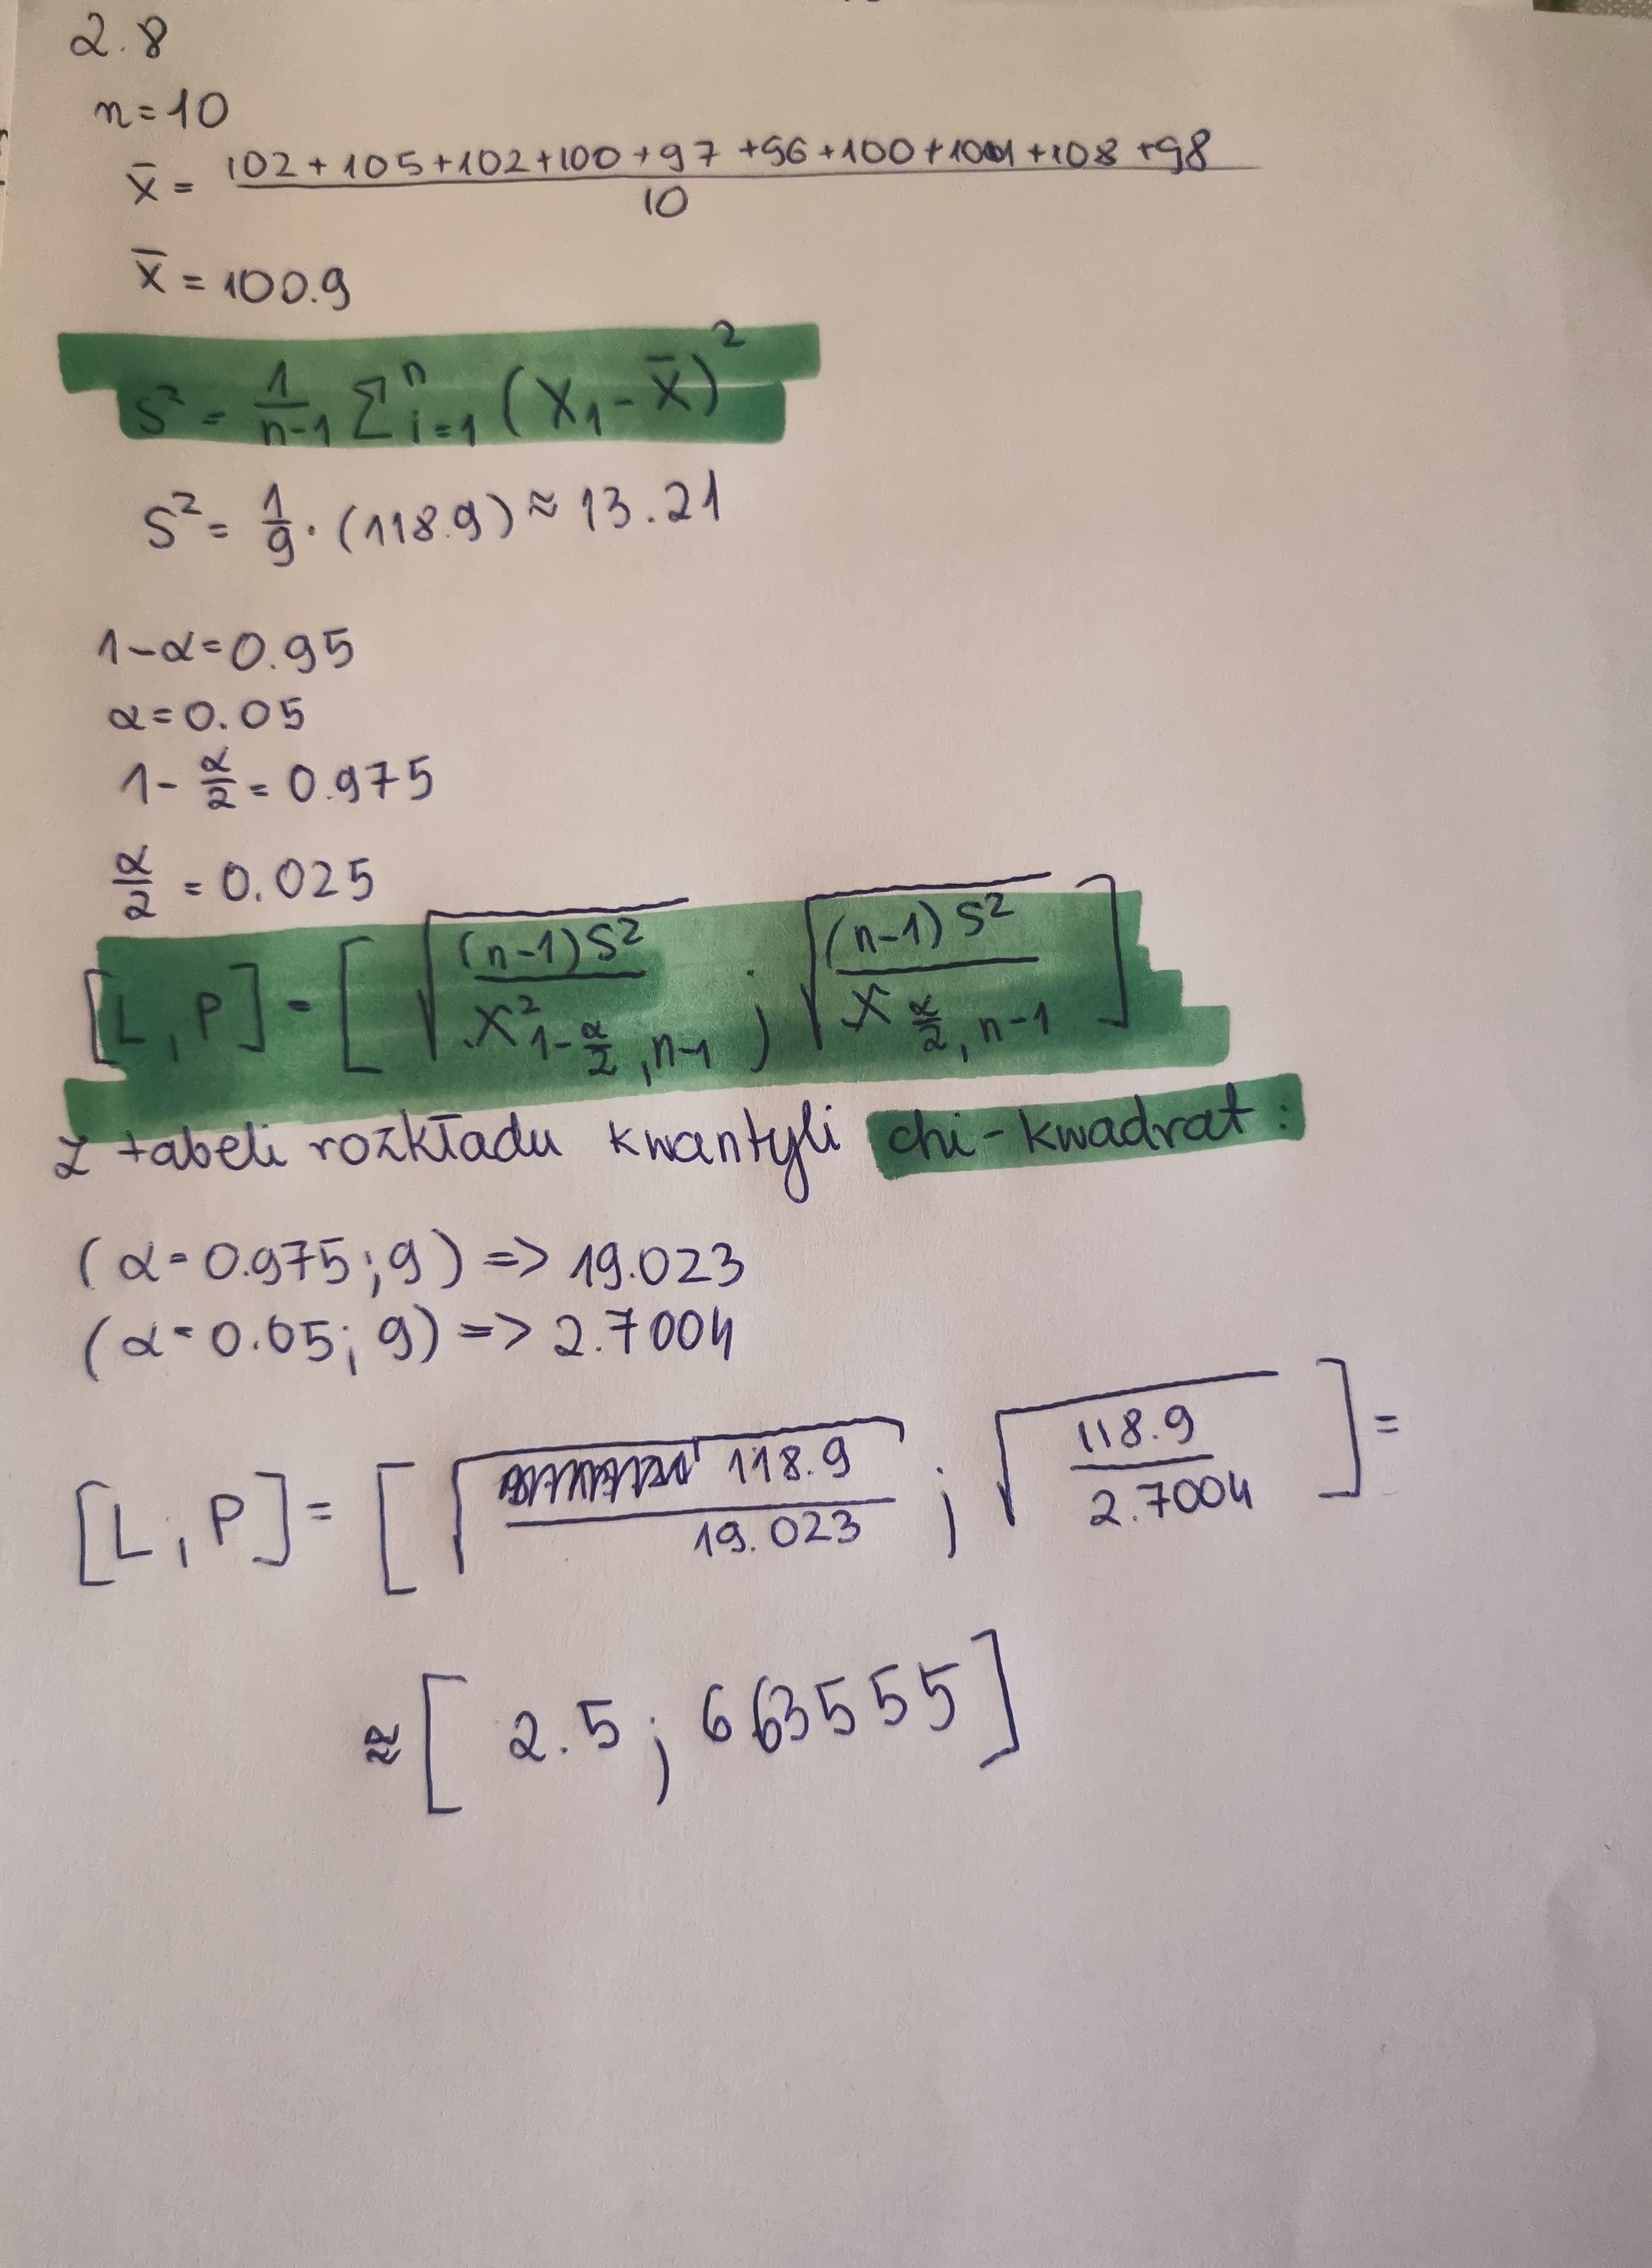 2.8
n=10
x̄ = (102+105+102+100+97+96+100+101+108+98)/10
x̄ = 100.9
S² = 1/(n-1) Σⁿᵢ₌₁ (X₁ - X̄)²
S² = 1/9 · (118.9) ≈ 13.21
1-α=0.95
α=0.05
1 - α/2 = 0.975
α/2 = 0.025
[L, P] = [√((n-1)S² / X²_{1-α/2, n-1}) ; √((n-1)S² / X_{α/2, n-1})]
Z tabeli rozkładu kwantyli chi-kwadrat:
(α=0.975; 9) => 19.023
(α=0.05; 9) => 2.7004
[L, P] = [√(118.9 / 19.023) ; √(118.9 / 2.7004)] =
≈ [2.5; 663555]